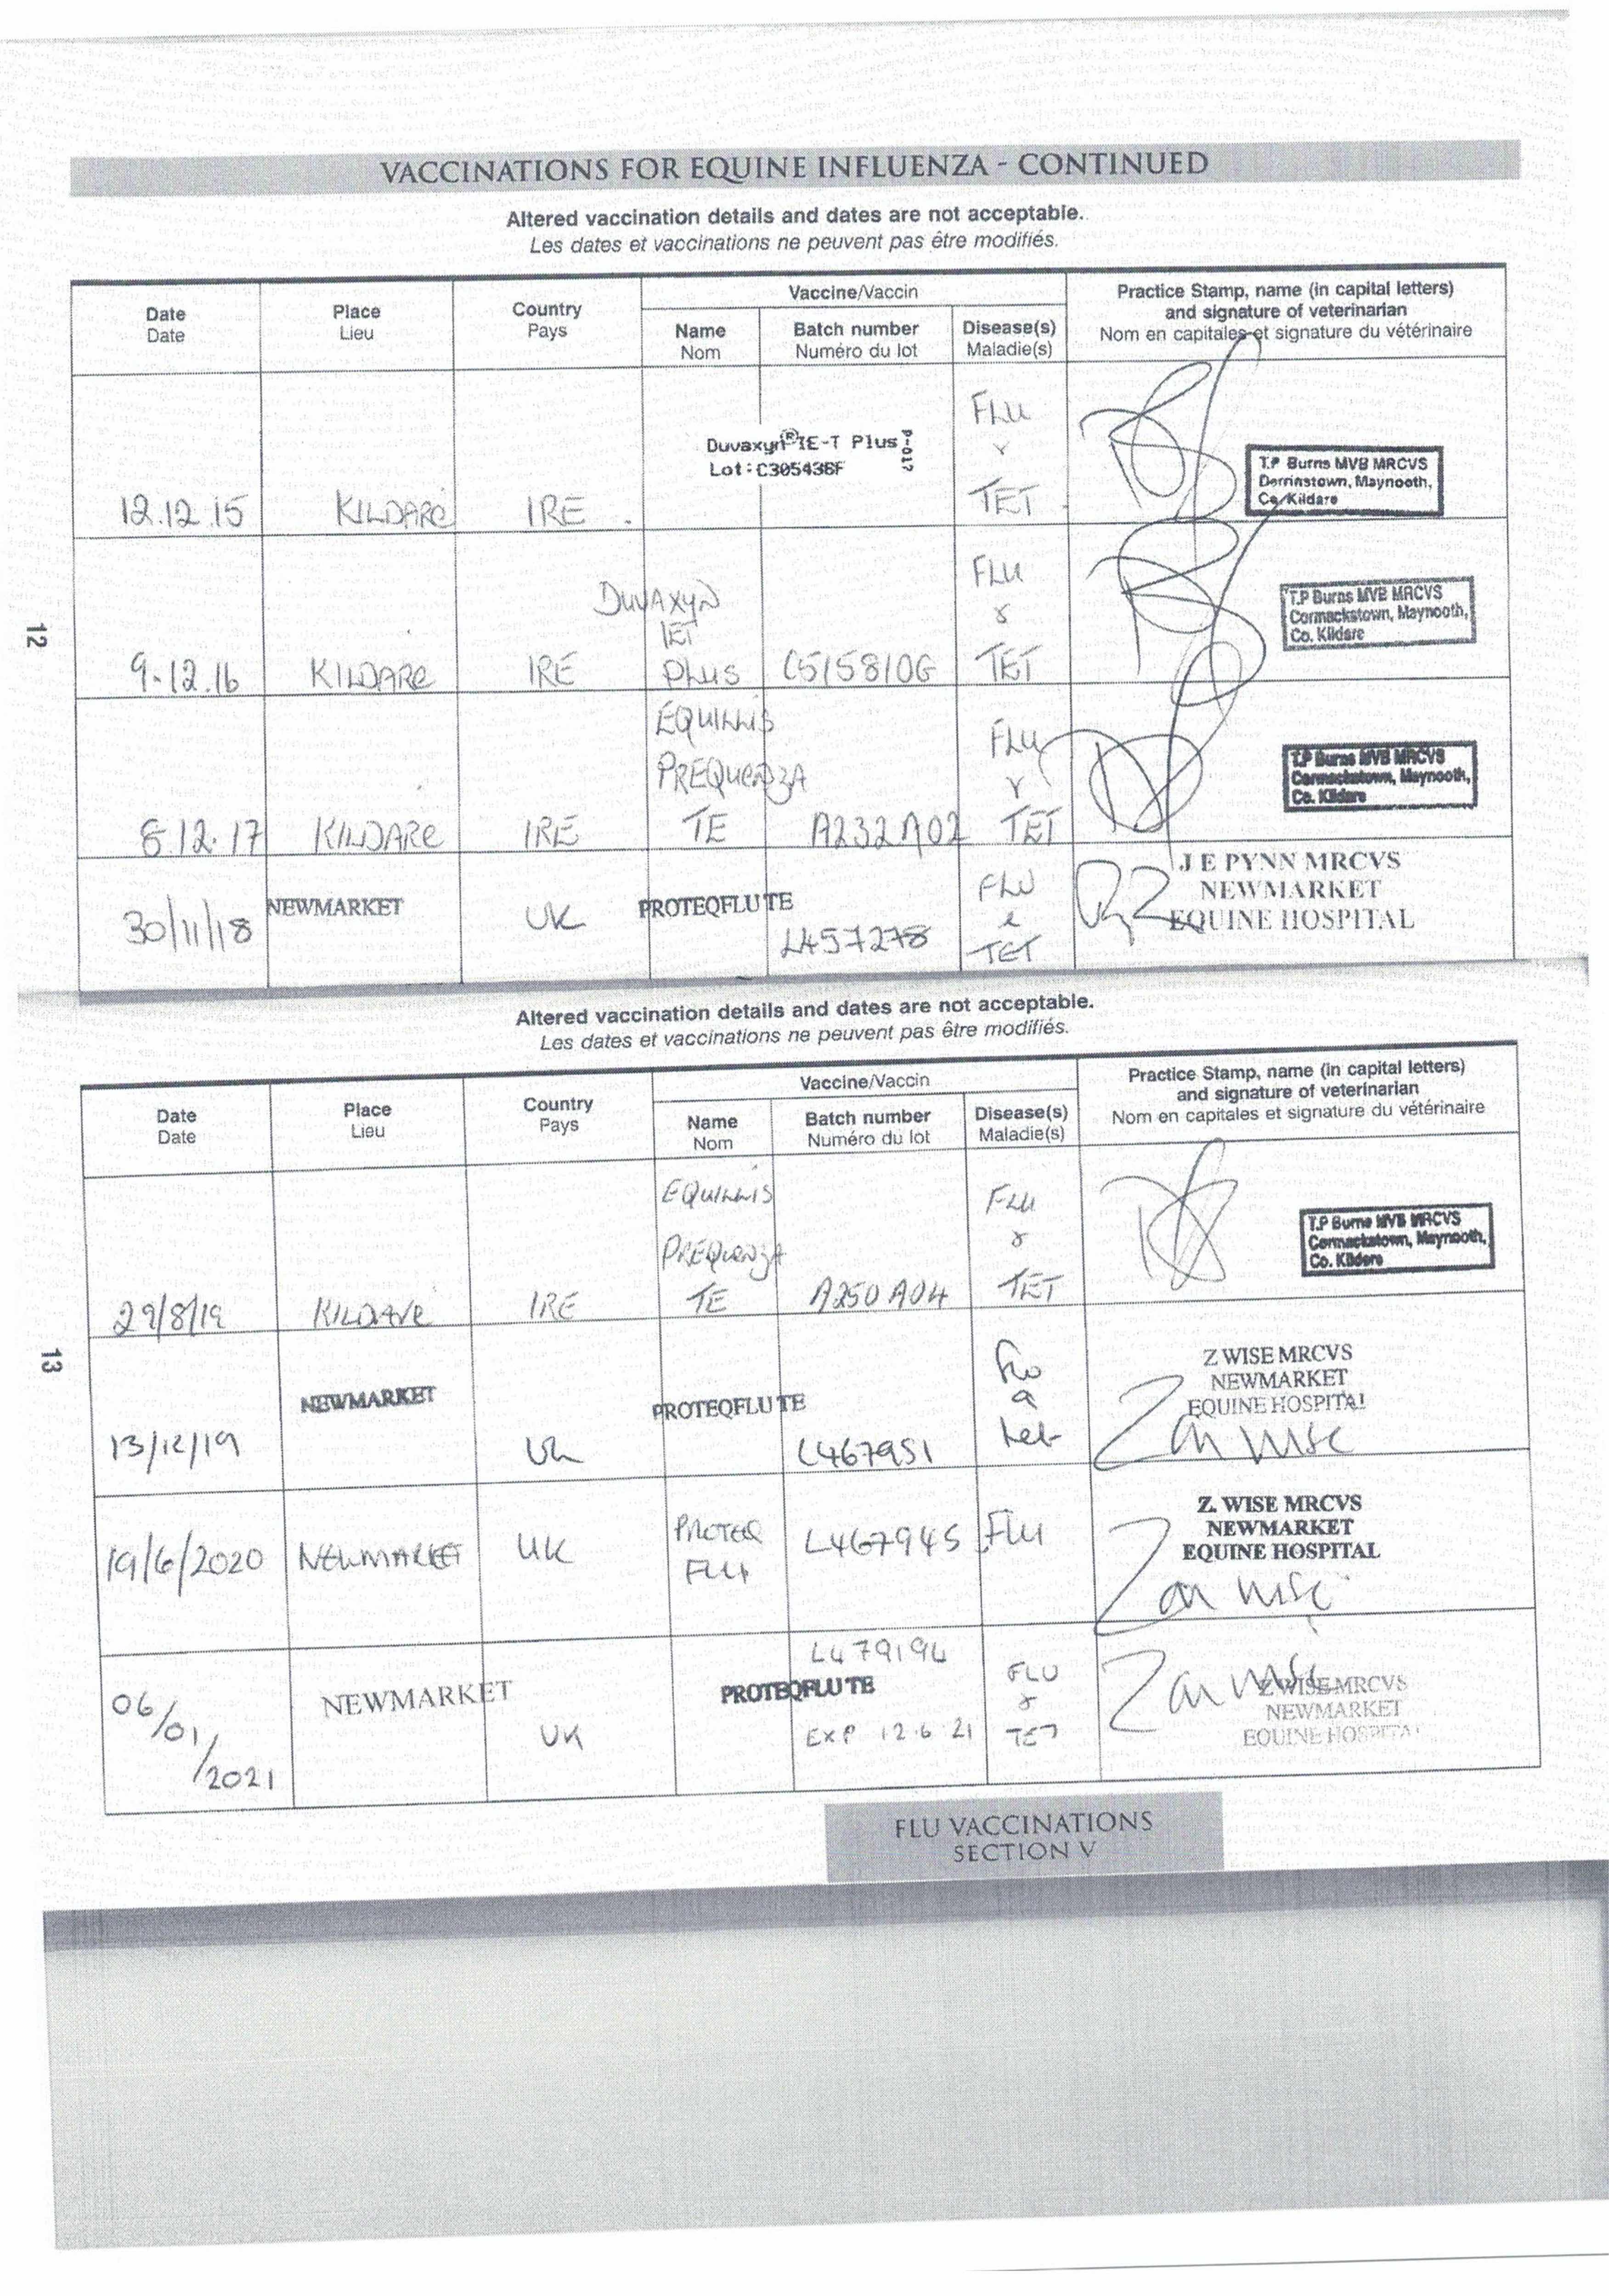 VACCINATIONS FOR EQUINE INFLUENZA - CONTINUED
Altered vaccination details and dates are not acceptable.
Les dates et vaccinations ne peuvent pas être modifiés.
Date Place Country Vaccine/Vaccin Practice Stamp, name (in capital letters)
Date Lieu Pays and signature of veterinarian
Name Batch number Disease(s) Nom en capitales et signature du vétérinaire
Nom Numéro du lot Maladie(s)
FLU
Duvaxyn® IE-T Plus P-017 &
Lot: C305436F
T.P Burns MVB MRCVS
Derrinstown, Maynooth,
Co. Kildare
12.12.15 KILDARE IRE TET
FLU
DUVAXYN
IET &
T.P Burns MVB MRCVS
Cormackstown, Maynooth,
Co. Kildare
12
9.12.16 KILDARE IRE PLUS C515810G TET
EQUILLIS FLU
PREQUENZA &
T.P Burns MVB MRCVS
Cormackstown, Maynooth,
Co. Kildare
8.12.17 KILDARE IRE TE A232A02 TET
J E PYNN MRCVS
NEWMARKET
EQUINE HOSPITAL
NEWMARKET PROTEQFLU TE FLU
30/11/18 UK L457278 & TET
Altered vaccination details and dates are not acceptable.
Les dates et vaccinations ne peuvent pas être modifiés.
Date Place Country Vaccine/Vaccin Practice Stamp, name (in capital letters)
Date Lieu Pays and signature of veterinarian
Name Batch number Disease(s) Nom en capitales et signature du vétérinaire
Nom Numéro du lot Maladie(s)
EQUILLIS FLU
PREQUENZA &
T.P Burns MVB MRCVS
Cormackstown, Maynooth,
Co. Kildare
29/8/19 KILDARE IRE TE A250A04 TET
13
Z WISE MRCVS
NEWMARKET
EQUINE HOSPITAL
NEWMARKET PROTEQFLU TE Flu &
13/12/19 UK L467951 tet
Z. WISE MRCVS
NEWMARKET
EQUINE HOSPITAL
19/6/2020 NEWMARKET UK PROTEQ L467945 Flu
FLU
L479194
06/01/2021 NEWMARKET UK PROTEQFLU TE FLU & TET
EXP 12.6.21
Z WISE MRCVS
NEWMARKET
EQUINE HOSPITAL
FLU VACCINATIONS
SECTION V